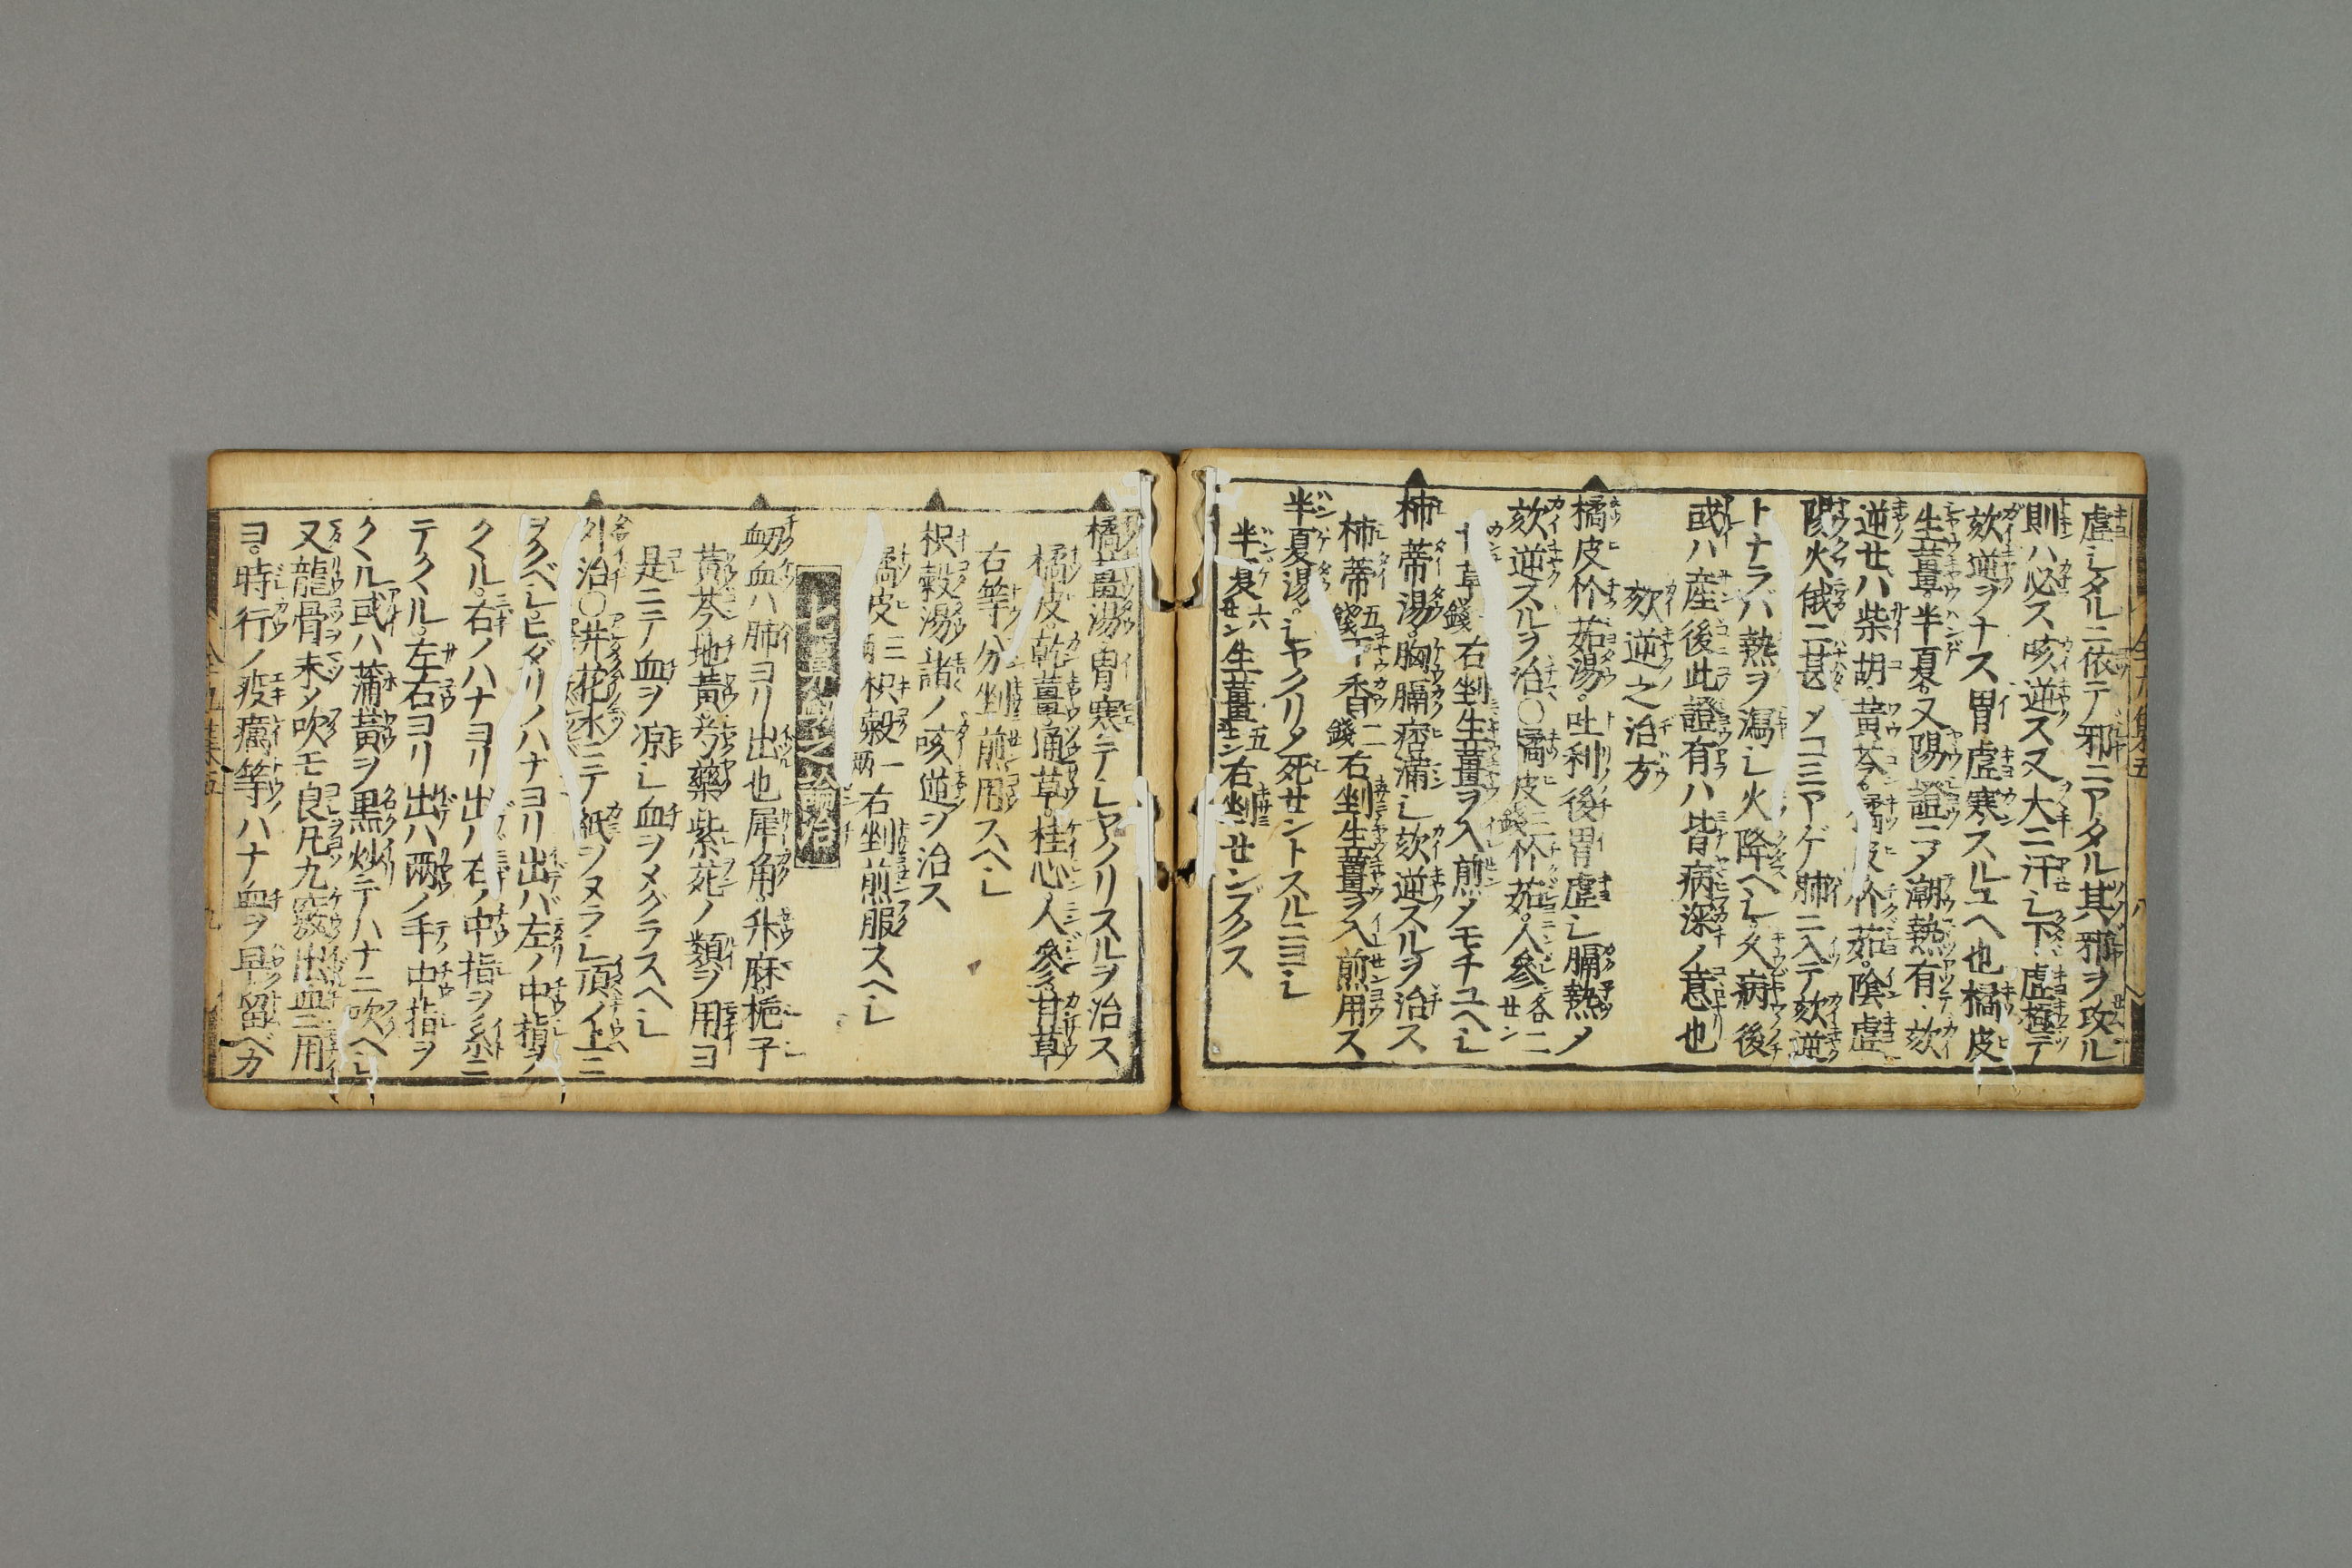 虚シタルニ依テ邪ニアタル其邪ヲ攻ル
則ハ必ス咳逆ス又大ニ汗シ下虚極テ
欬逆ヲナス胃虚寒スルユヘ也橘皮
生薑半夏又陽證ニメ潮熱有欬
逆セハ柴胡黄芩 竹茹陰虚
陽火俄ニ甚メコミアゲ肺ニ入テ欬逆
トナラバ熱ヲ瀉シ火降ヘシ久病後
或ハ産後此證有ハ皆病深ノ意也
欬逆之治方
橘皮竹茹湯吐利後胃虚シ膈熱メ
欬逆スルヲ治○橘皮三錢竹茹人參各二セン
甘草錢右剉生薑ヲ入煎メモチユヘシ
柿蒂湯胸膈痞滿シ欬逆スルヲ治ス
柿蒂五錢丁香二錢右剉生薑ヲ入煎用ス
半夏湯シヤクリメ死セントスルニヨシ
半夏六セン生薑五セン右剉センフクス
橘薑湯胃寒テシヤクリスルヲ治ス
橘皮乾薑通草桂心人參甘草
右等分剉煎用スヘシ
枳殻湯諸ノ咳逆ヲ治ス
橘皮三兩枳殻一兩右剉煎服スヘシ
衂血ハ肺ヨリ出也犀角升麻梔子
黄芩地黄芍藥紫菀ノ類ヲ用ヨ
是ニテ血ヲ凉シ血ヲメグラスヘシ
外治○井花水ニテ紙ヲヌラシ頂ノ上ニ
ヲクベシヒダリノハナヨリ出バ左ノ中指ヲ
クヽル右ノハナヨリ出ハ右ノ中指ヲ糸ニ
テクヽル左右ヨリ出ハ兩ノ手中指ヲ
クヽル或ハ蒲黄ヲ黒炒テハナニ吹ヘシ
又龍骨末メ吹モ良凡九竅出血ニ用
ヨ時行ノ疫癘等ノハナ血ヲ早留ベカ